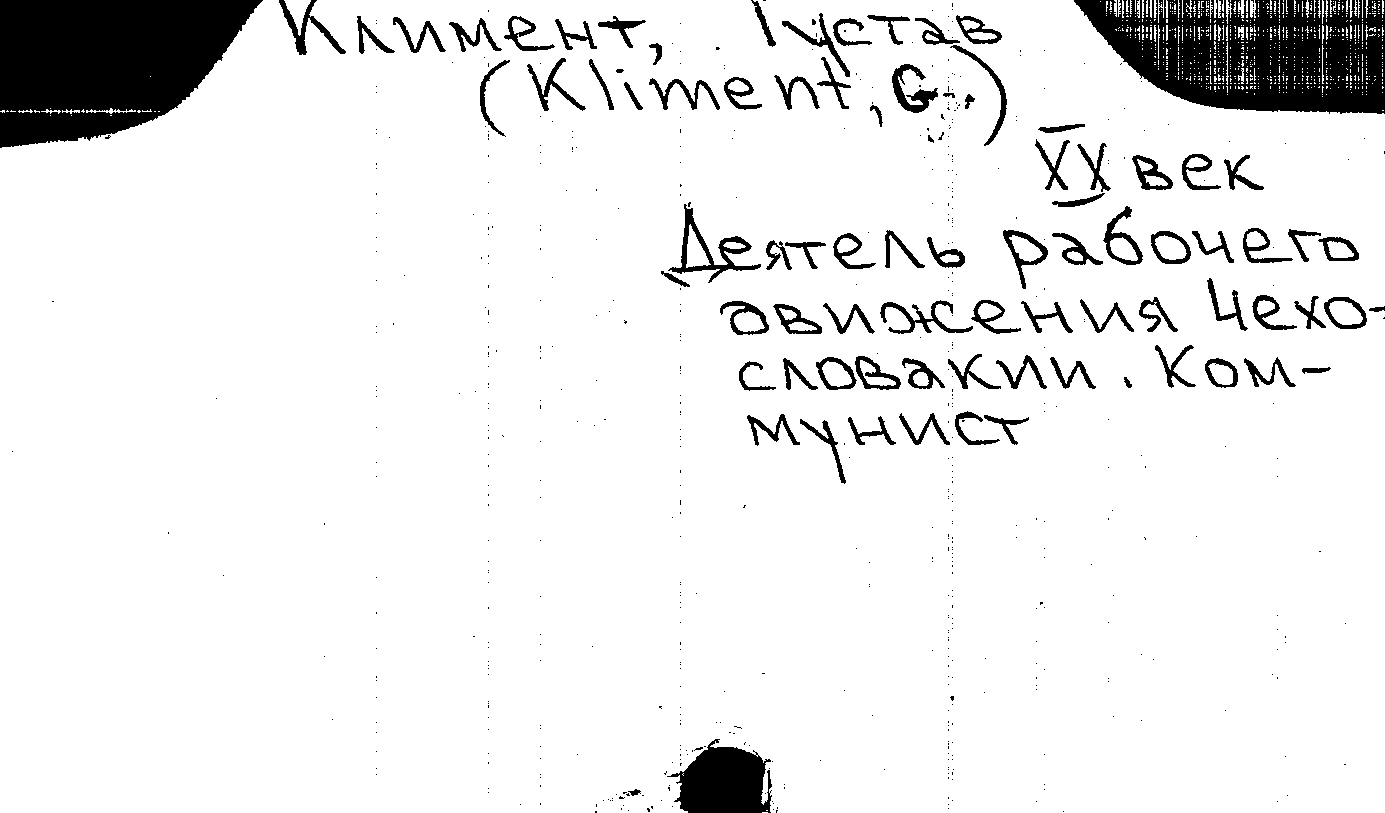 Климент, Густав
(Kliment, G.)
XX век
Деятель рабочего
движения Чехо-
словакии. Ком-
мунист